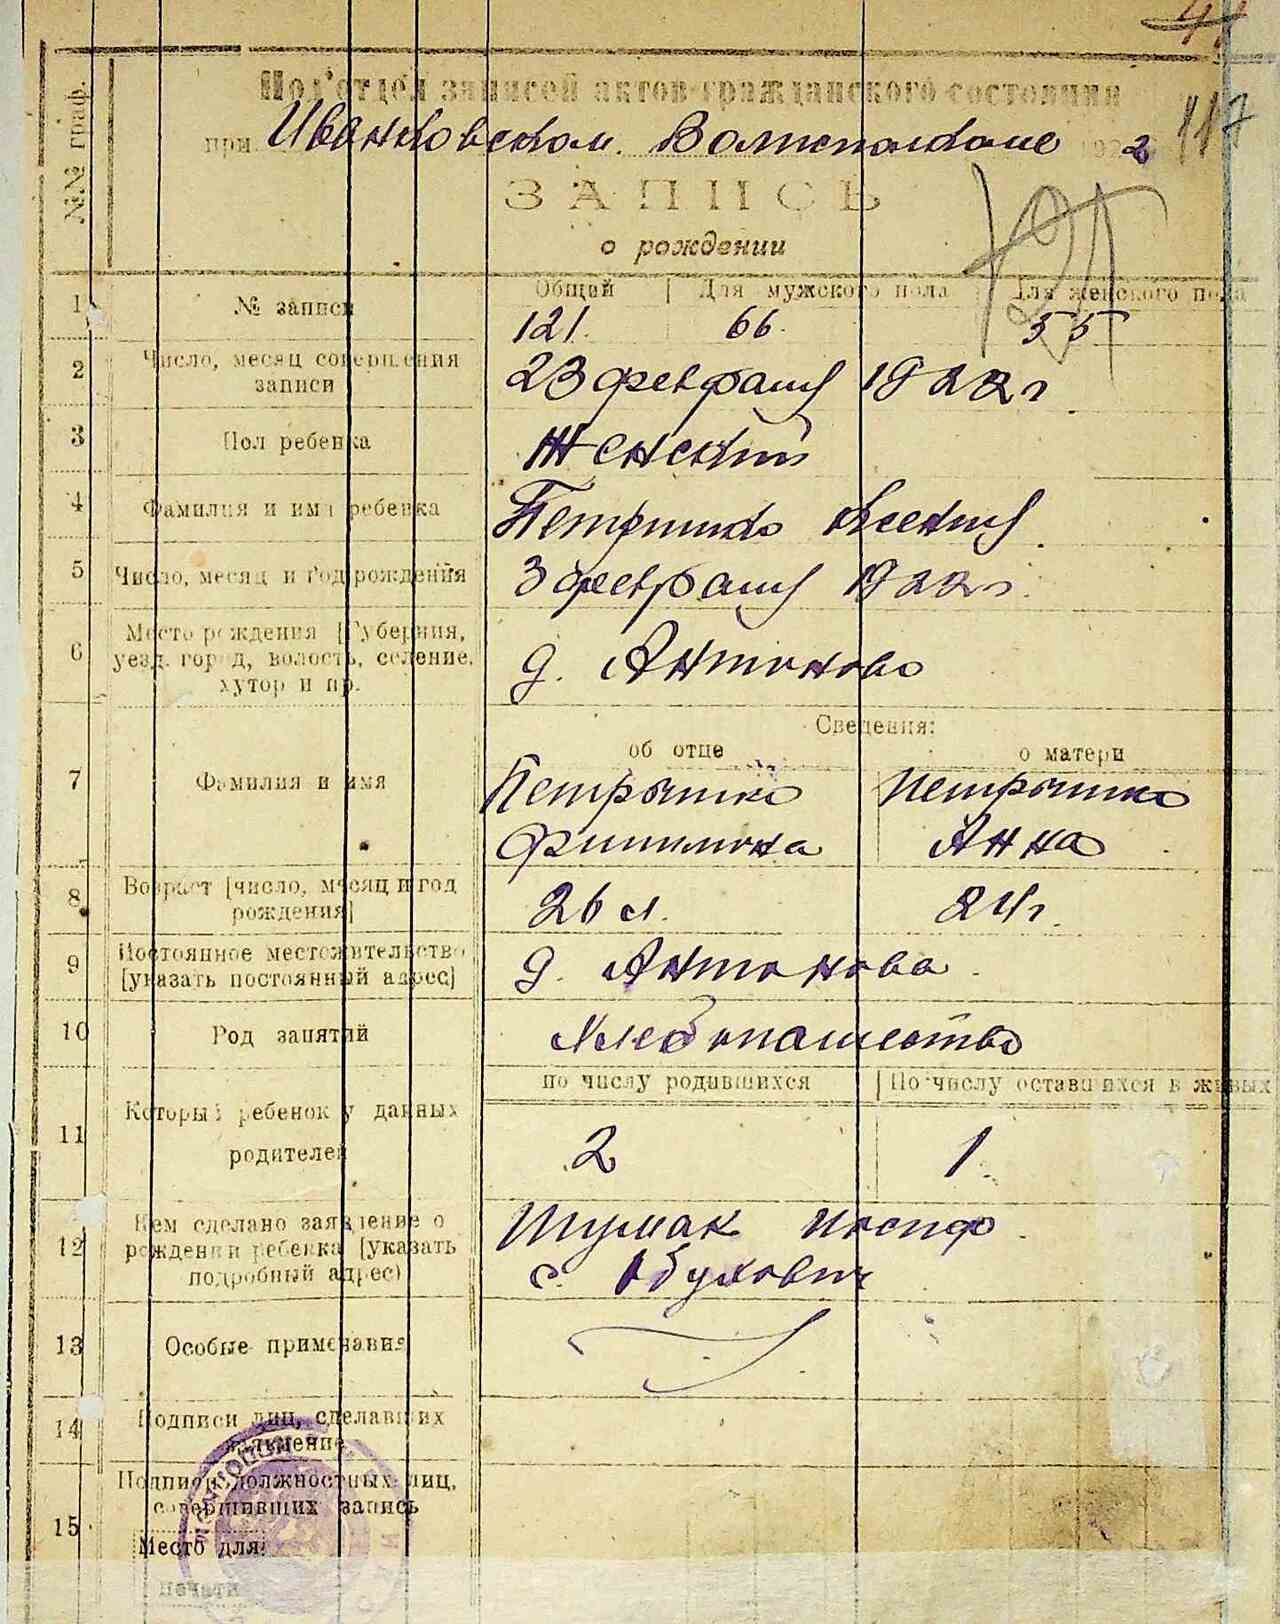 №№ граф.
Под'отдел записей актов гражданского состояния
при Иванковском Волисполкоме 192 2
117
ЗАПИСЬ
о рождении
Общий Для мужского пола Для женского пола
1 № записи 121. 66. 55
2 Число, месяц совершения
записи 23 февраля 1922 г.
3 Пол ребенка Женский
4 Фамилия и имя ребенка Петрушко Ксения
5 Число, месяц и год рождения 3 февраля 1922 г.
6 Место рождения [Губерния,
уезд, город, волость, селение,
хутор и пр. д. Антоново
Сведения:
об отце о матери
7 Фамилия и имя Петрушко Петрушко
Филимона Анна
8 Возраст [число, месяц и год
рождения] 26 л. 24 г.
9 Постоянное местожительство
[указать постоянный адрес] д. Антонова
10 Род занятий Хлебопашество
по числу родившихся По числу оставшихся в живых
11 Который ребенок у данных
родителей 2 1
12 Кем сделано заявление о
рождении ребенка [указать
подробный адрес) Шумак Иосиф
с. Обухович
13 Особые примечания
14 Подписи лиц, сделавших
заявление
15 Подписи должностных лиц,
совершивших запись
Место для
печати